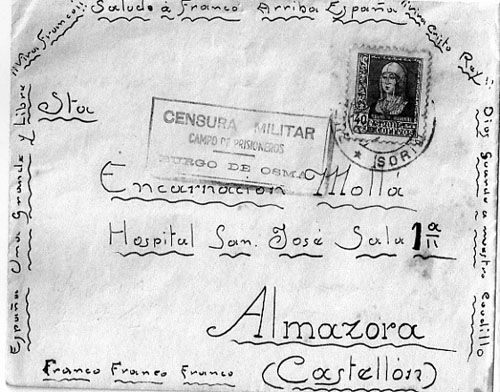 ¡¡Viva Franco!! Saludo á Franco Arriba España ¡¡Viva Cristo Rey!!
España Una Grande y Libre
Dios guarde a nuestro Caudillo
Sta
CENSURA MILITAR
CAMPO DE PRISIONEROS
BURGO DE OSMA
40 CORREOS
SORI
Encarnación Mollá
Hospital San. José Sala 1ª
Almazora
(Castellón)
Franco Franco Franco